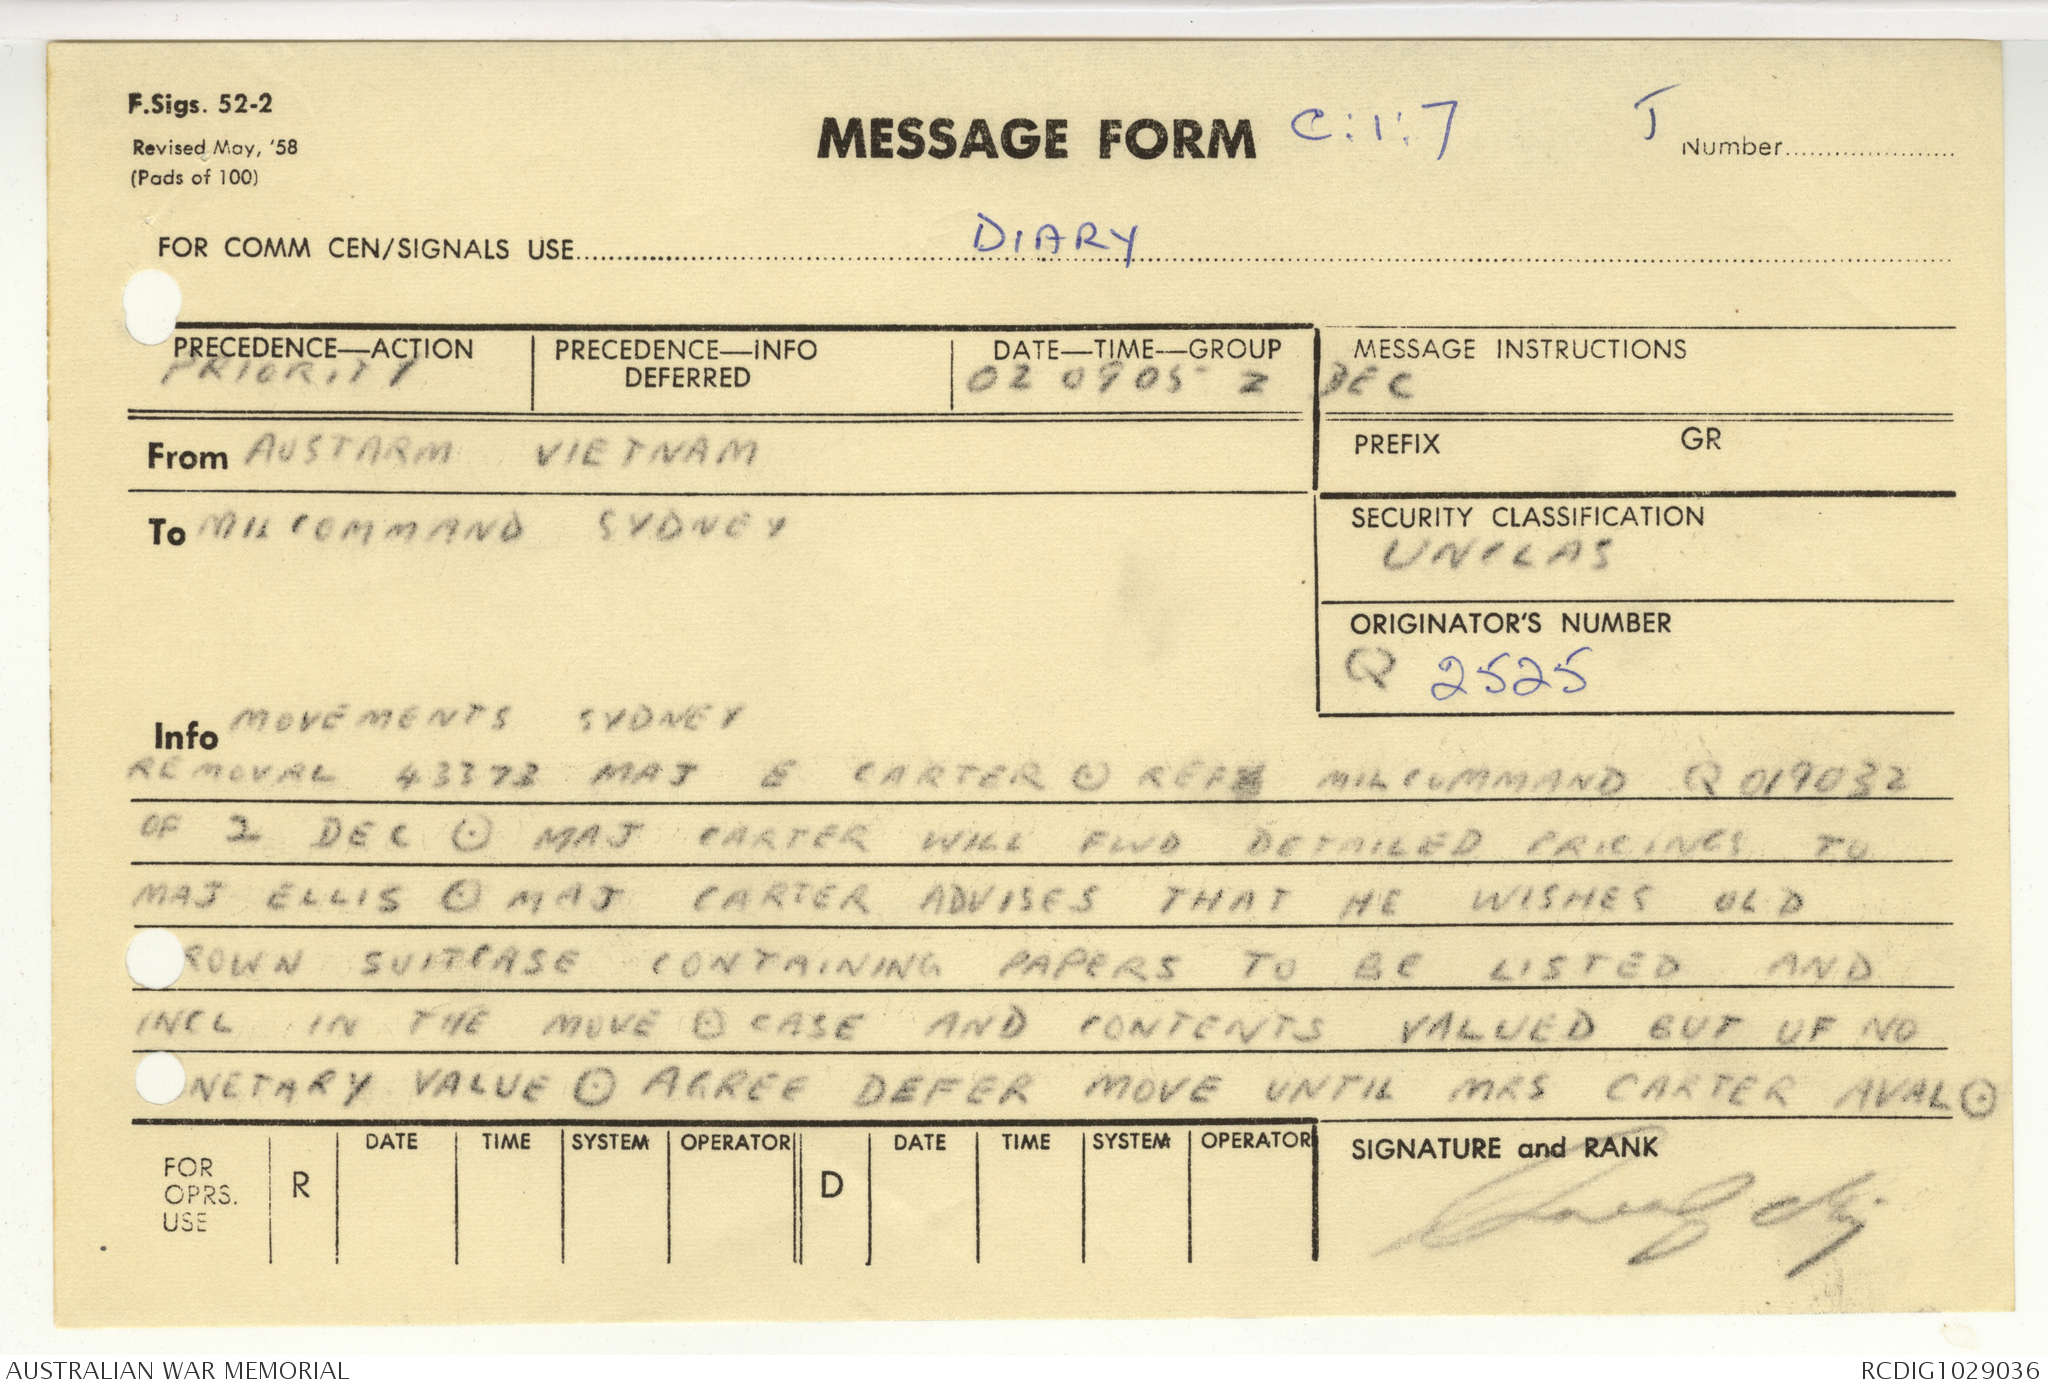 F.Sigs. 52-2
Revised May, '58
(Pads of 100)
MESSAGE FORM C:1:7 J Number
FOR COMM CEN/SIGNALS USE DIARY
PRECEDENCE—ACTION PRECEDENCE—INFO DATE—TIME—GROUP MESSAGE INSTRUCTIONS
PRIORITY DEFERRED 02 0905 Z DEC
From AUSTARM VIETNAM PREFIX GR
To MILCOMMAND SYDNEY SECURITY CLASSIFICATION
UNCLAS
ORIGINATOR'S NUMBER
Q 2525
Info MOVEMENTS SYDNEY
REMOVAL 43373 MAJ E CARTER ⊙ REF MILCOMMAND Q 019032
OF 2 DEC ⊙ MAJ CARTER WILL FWD DETAILED PRICINGS TO
MAJ ELLIS ⊙ MAJ CARTER ADVISES THAT HE WISHES OLD
ROWN SUITCASE CONTAINING PAPERS TO BE LISTED AND
INCL IN THE MOVE ⊙ CASE AND CONTENTS VALUED BUT OF NO
NETARY VALUE ⊙ AGREE DEFER MOVE UNTIL MRS CARTER AVAL ⊙
FOR OPRS. USE R DATE TIME SYSTEM OPERATOR D DATE TIME SYSTEM OPERATOR SIGNATURE and RANK
AUSTRALIAN WAR MEMORIAL RCDIG1029036